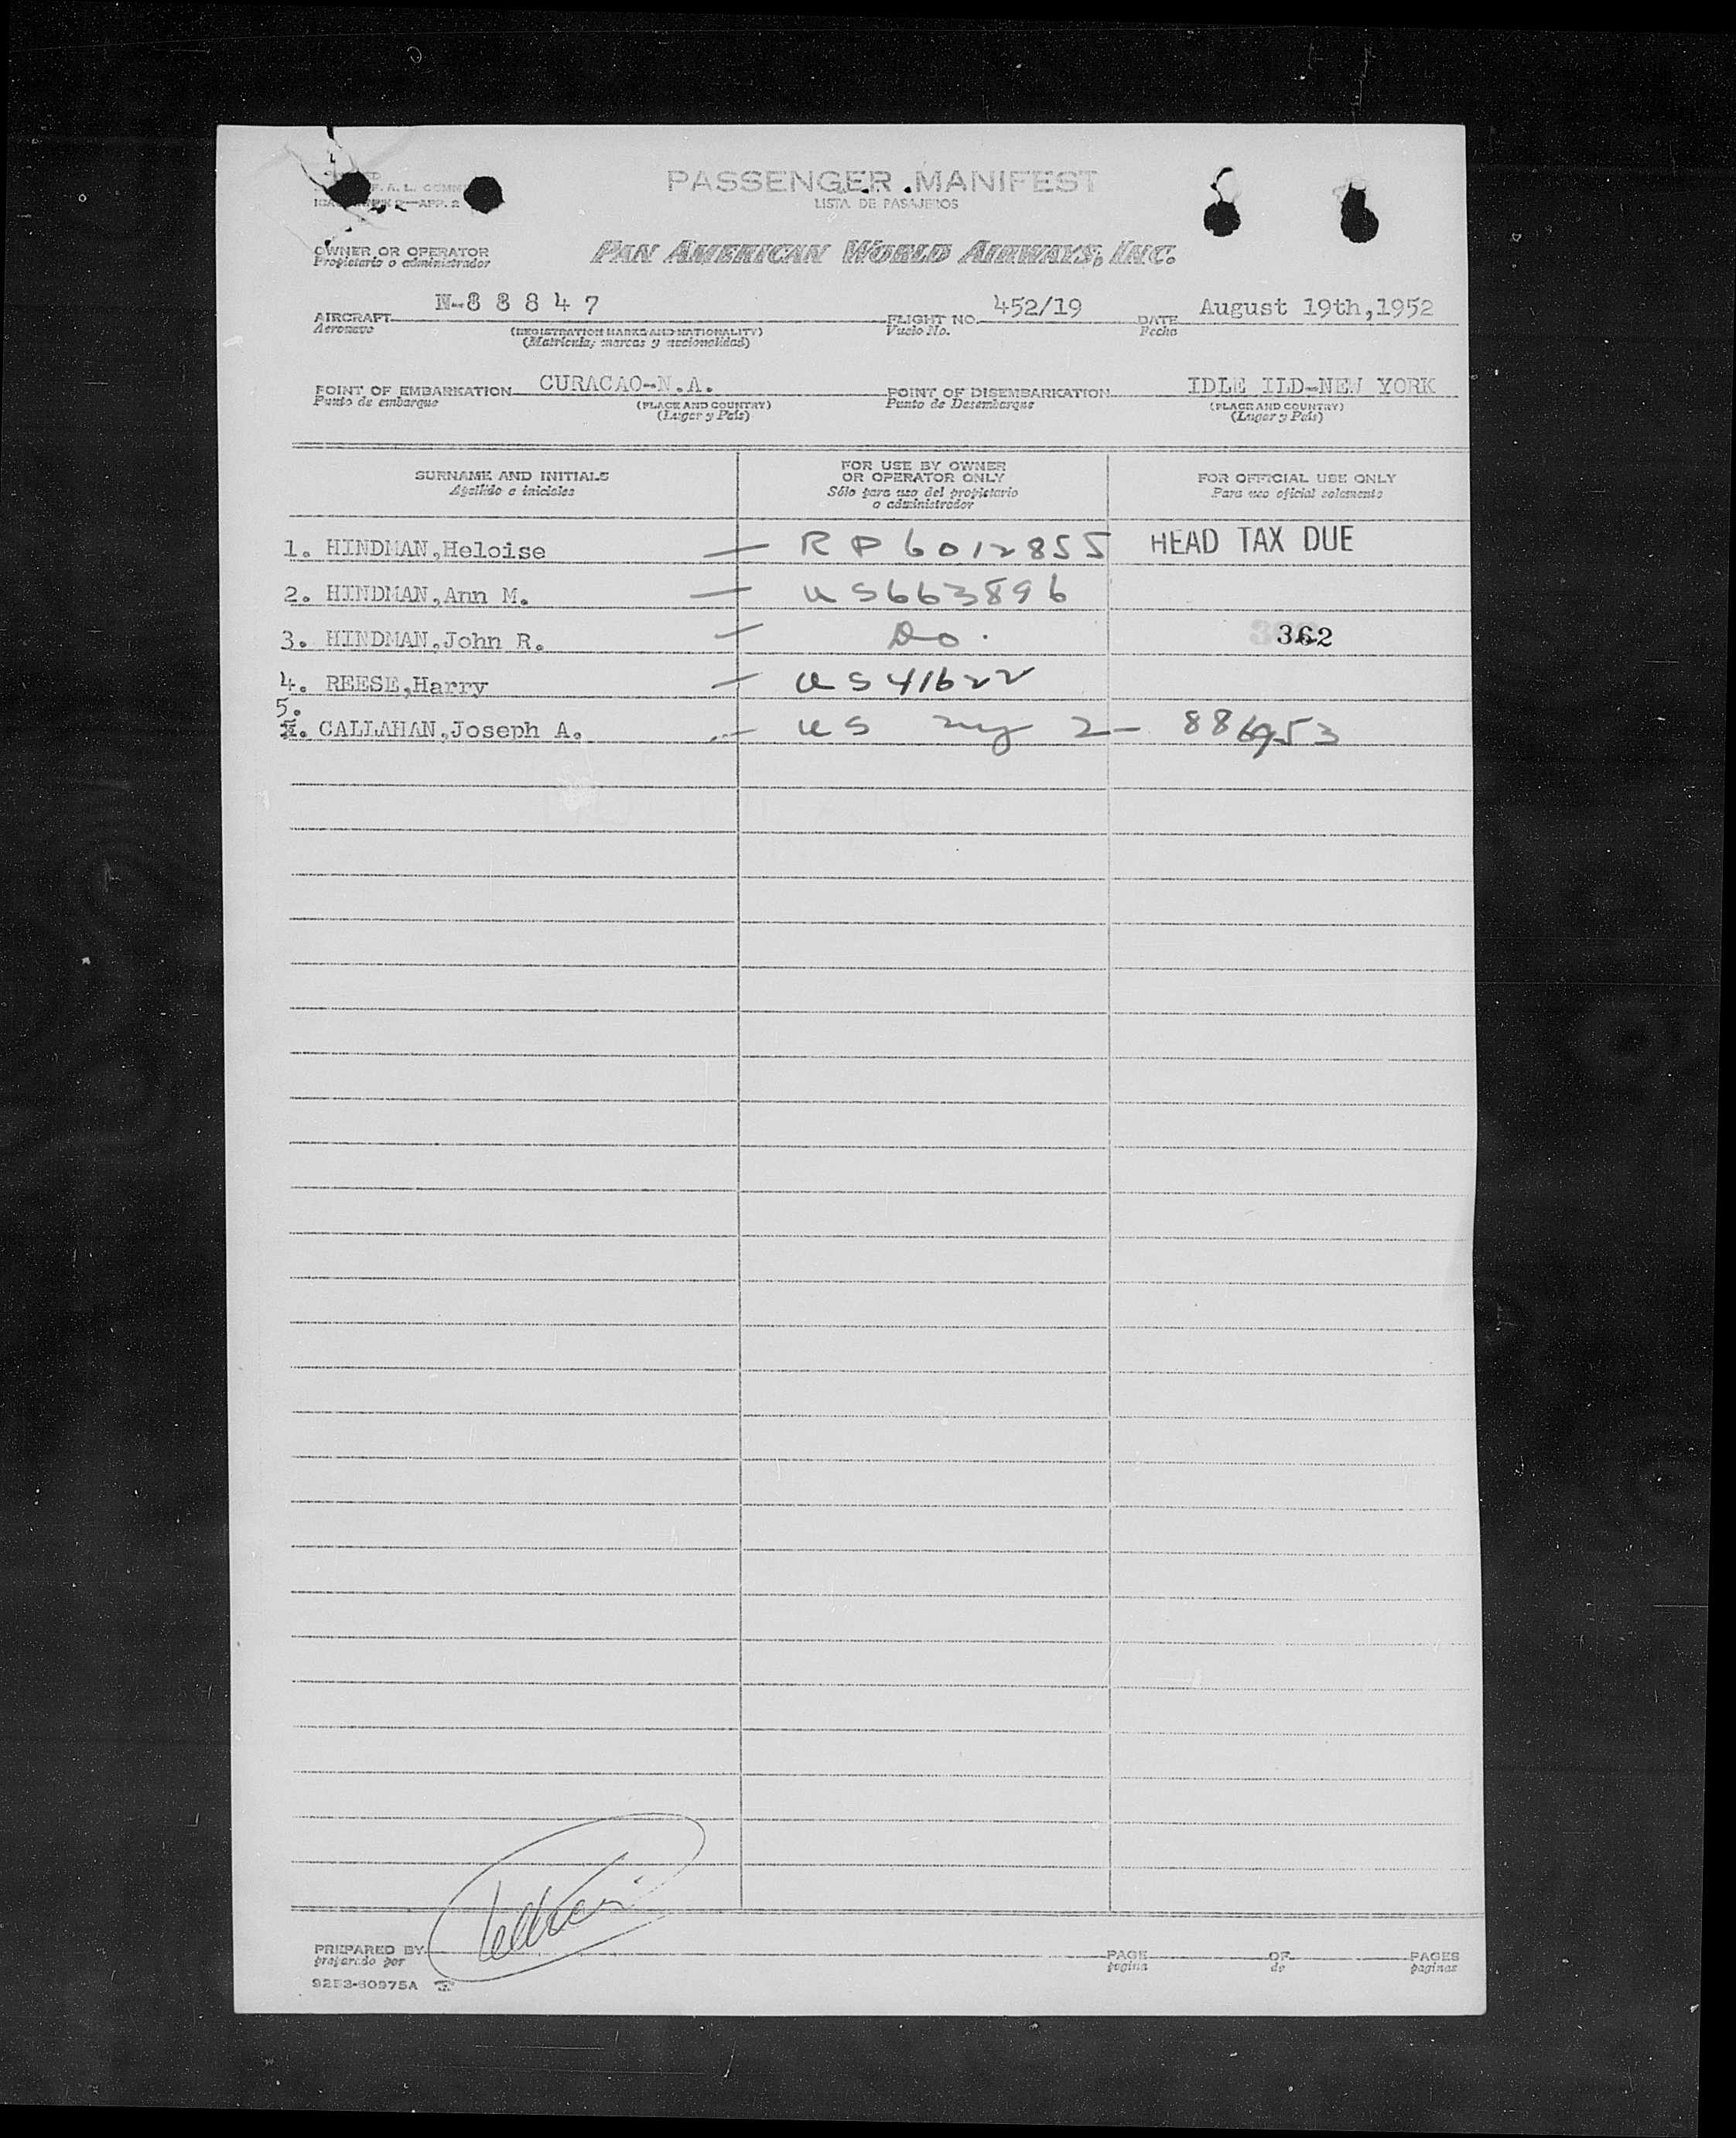 F. A. L.
PASSENGER MANIFEST
LISTA DE PASAJEROS
OWNER OR OPERATOR
Propietario o administrador
PAN AMERICAN WORLD AIRWAYS, INC.
AIRCRAFT N-88847 FLIGHT NO. 452/19 DATE August 19th,1952
Aeronave (REGISTRATION MARKS AND NATIONALITY) Vuelo No. Fecha
(Matricula; marcas y nacionalidad)
POINT OF EMBARKATION CURACAO-N.A. POINT OF DISEMBARKATION IDLE ILD-NEW YORK
Punto de embarque (PLACE AND COUNTRY) Punto de Desembarque (PLACE AND COUNTRY)
(Lugar y País) (Lugar y País)
SURNAME AND INITIALS FOR USE BY OWNER OR OPERATOR ONLY FOR OFFICIAL USE ONLY
Apellido e iniciales Sólo para uso del propietario o administrador Para uso oficial solamente
1. HINDMAN,Heloise — RP6012855 HEAD TAX DUE
2. HINDMAN,Ann M. — US663896
3. HINDMAN,John R. — Do. 362
4. REESE,Harry — US41622
5. CALLAHAN,Joseph A. — US ny 2-
PREPARED BY PAGE OF PAGES
preparado por pagina de paginas